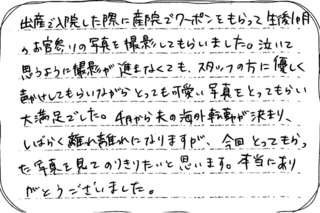 出産で入院した際に産院でクーポンをもらって生後1ヶ月
のお宮参りの写真を撮影してもらいました。泣いて
思うように撮影が進まなくても、スタッフの方に優しく
声かけしてもらいながらとっても可愛い写真をとってもらい
大満足でした。4月から夫の海外転勤が決まり、
しばらく離れ離れになりますが、今回とってもらっ
た写真を見てのりきりたいと思います。本当にあり
がとうございました。